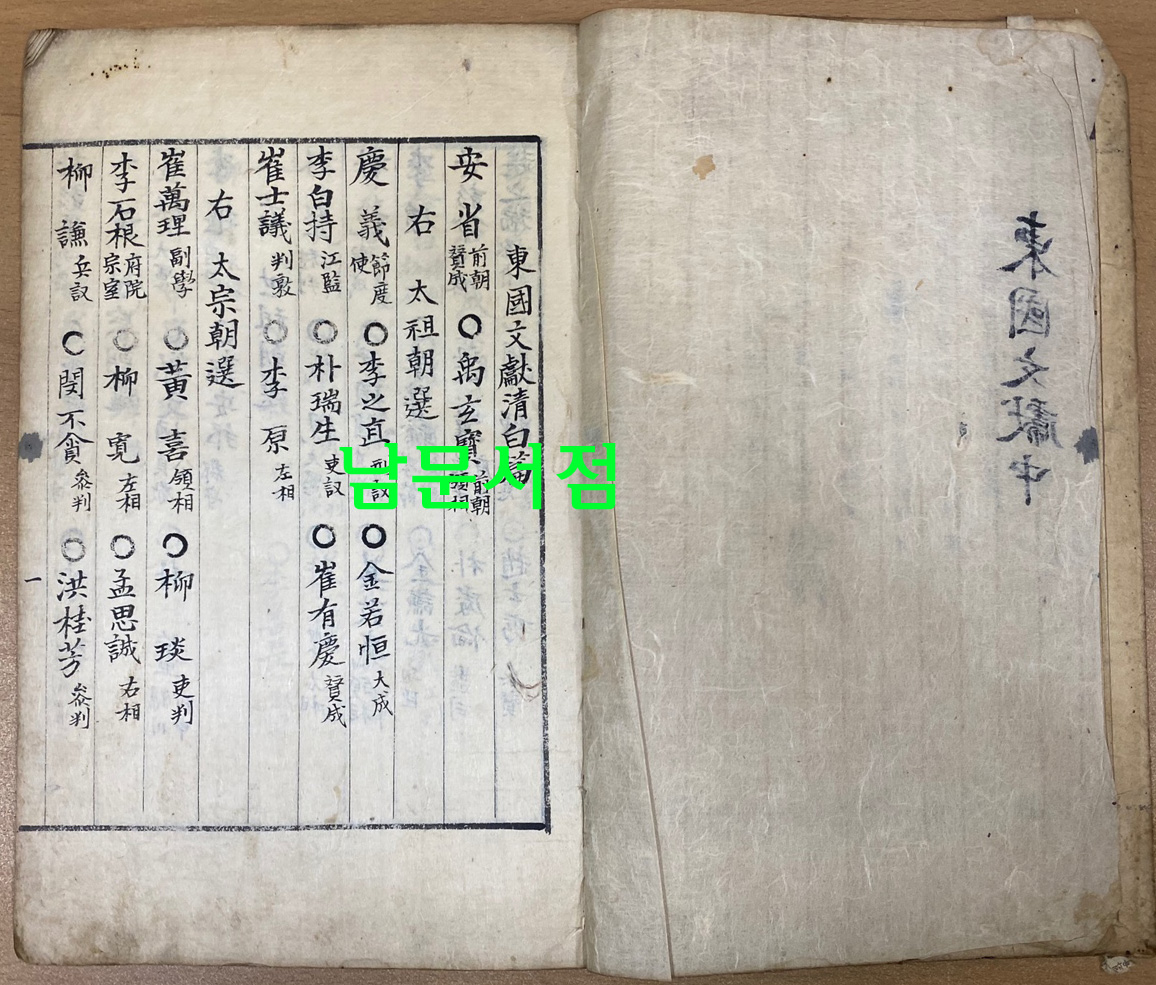 東國文獻中
東國文獻淸白篇
安省 前朝贊成 ○ 禹玄寶 前朝
右太祖朝選
慶義 節度使 ○ 李之直 刑議 ○ 金若恒 大成
李白持 江監 ○ 朴瑞生 吏議 ○ 崔有慶 贊成
崔士議 判敦 ○ 李原 左相
右太宗朝選
崔萬理 副學 ○ 黃喜 領相 ○ 柳琰 吏判
李石根 府院宗室 ○ 柳寬 左相 ○ 孟思誠 右相
柳謙 兵議 ○ 閔不貪 參判 ○ 洪桂芳 參判
一
남문서점